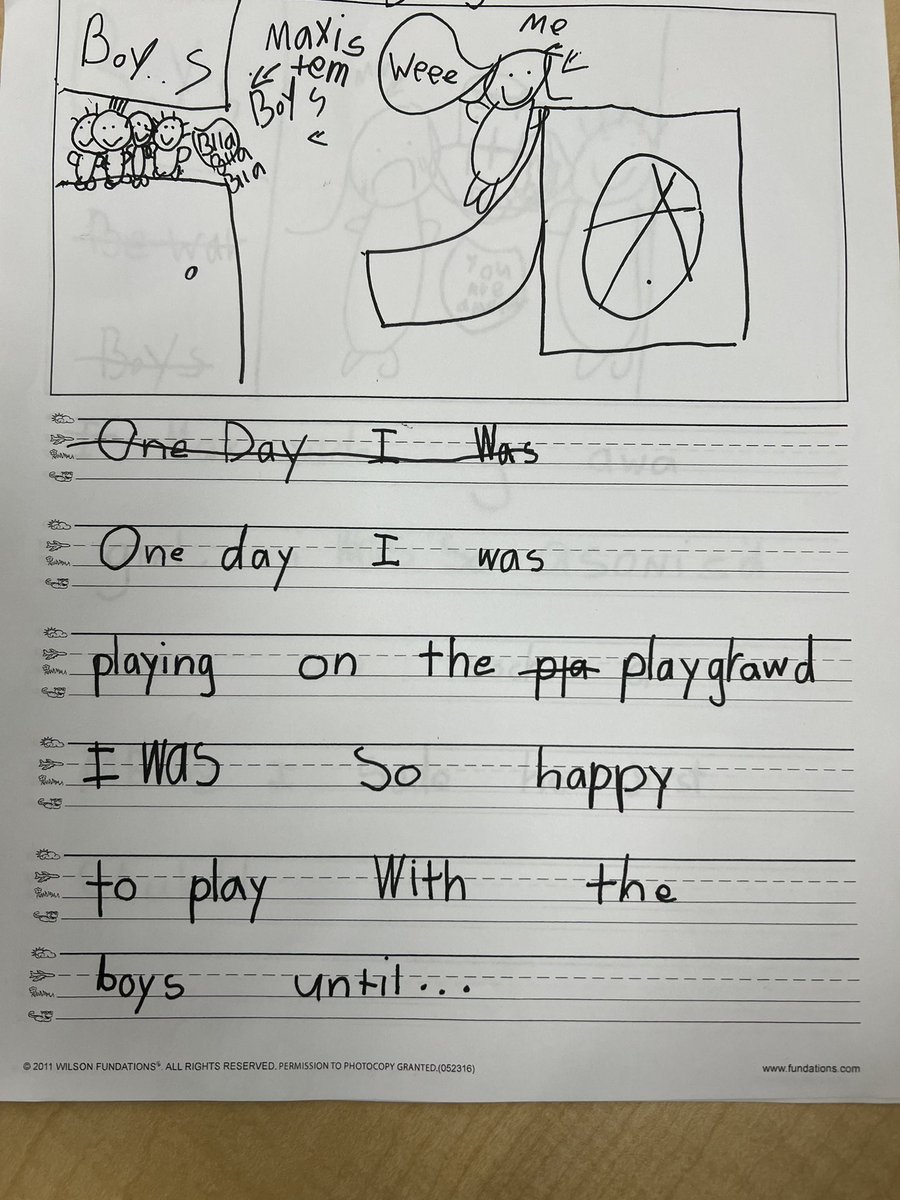 Boy..S
Maxis
tem
Boys
Weee
Me
Blla
Blla
Blla
One Day I Was
One day I was
playing on the pla playgrawd
I was so happy
to play With the
boys until...
© 2011 WILSON FUNDATIONS®. ALL RIGHTS RESERVED. PERMISSION TO PHOTOCOPY GRANTED.(052316)
www.fundations.com